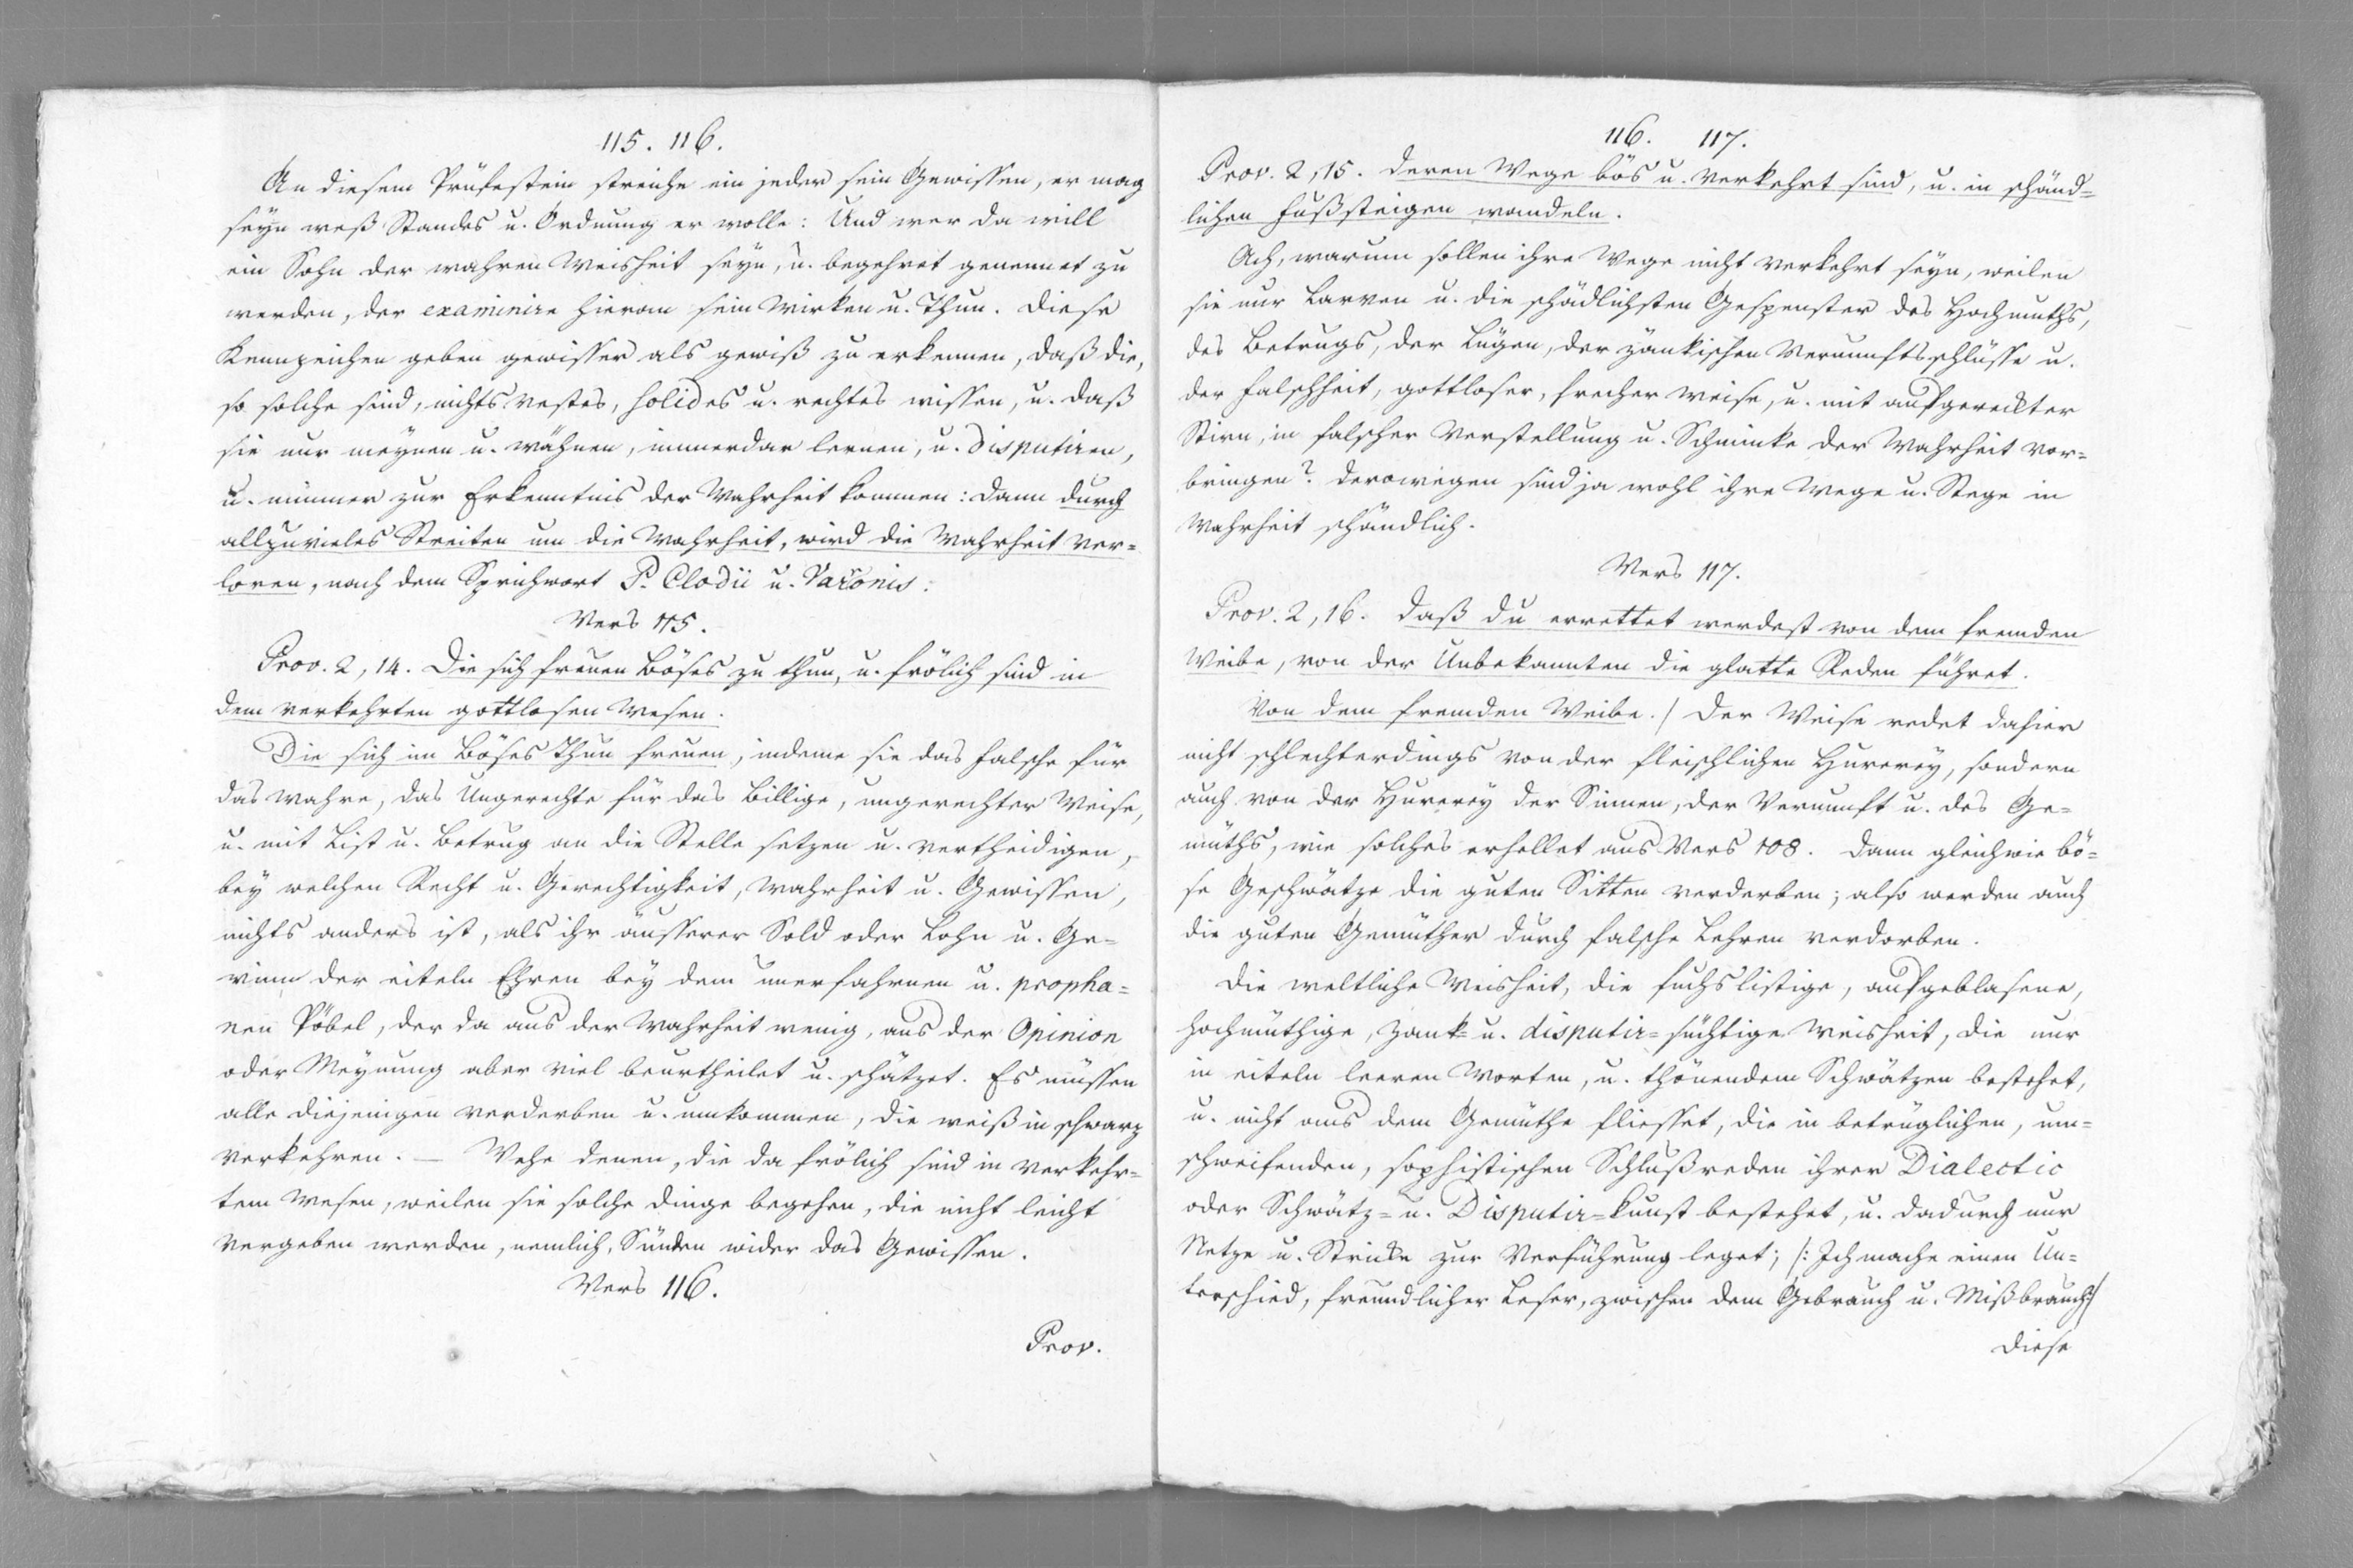 115. 116.
An diesem Prüfestein streiche ein jeder sein Gewissen, er mag
seyn weß Standes u. Ordnung er wolle: Und wer da will
ein Sohn der wahren Weisheit seyn, u. begehret genennet zu
werden, der examinire hieran sein Wirken u. Thun. Diese
Kennzeichen geben gewisser als gewiß zu erkennen, daß die,
so solche sind, nichts vestes, solides u. rechtes wissen, u. daß
sie nur meynen u. wähnen, immerdar lernen, u. disputiren,
u. nimmer zur Erkenntnis der Wahrheit kommen: dann durch
allzuvieles Streiten um die Wahrheit, wird die Wahrheit ver=
loren, nach dem Sprichwort P. Clodii u. Varonis:
Vers 115.
Prov. 2, 14. Die sich freuen Böses zu thun, u. frölich sind in
dem verkehrten gottlosen Wesen.
Die sich im Böses Thun freuen, indeme sie das falsche für
das wahre, das Ungerechte für das Billige, ungerechter Weise,
u. mit List u. Betrug an die Stelle setzen u. vertheidigen,
bey welchen Recht u. Gerechtigkeit, Wahrheit u. Gewissen,
nichts anders ist, als ihr äusserer Sold oder Lohn u. Ge=
winn der eiteln Ehren bey dem unerfahrnen u. propha=
nen Pöbel, der da aus der Wahrheit wenig, aus der Opinion
oder Meynung aber viel beurtheilet u. schätzet. Es müssen
alle diejenigen verderben u. umkommen, die weiß in schwarz
verkehren. — Wehe denen, die da frölich sind in verkehr=
tem Wesen, weilen sie solche Dinge begehen, die nicht leicht
vergeben werden, nemlich, Sünden wider das Gewissen.
Vers 116.
Prov.
116. 117.
Prov. 2, 15. deren Wege bös u. verkehrt sind, u. in schänd=
lichen Fußsteigen wandeln.
Ach, warum sollen ihre Wege nicht verkehrt seyn, weilen
sie nur Larven u. die schädlichsten Gespenster des Hochmuths,
des Betrugs, der Lügen, der zänkischen Vernunftsschlüsse u.
der Falschheit, gottloser, frecher Weise, u. mit aufgereckter
Stirn, in falscher Verstellung u. Schminke der Wahrheit vor=
bringen? derowegen sind ja wohl ihre Wege u. Stege in
Wahrheit schändlich.
Vers 117.
Prov. 2, 16. Daß du errettet werdest von dem fremden
Weibe, von der Unbekannten die glatte Reden führet.
Von dem fremden Weibe./ Der Weise redet dahier
nicht schlechterdings von der fleischlichen Hurerey, sondern
auch von der Hurerey der Sinnen, der Vernunft u. des Ge=
müths, wie solches erhellet aus Vers 108. Dann gleichwie bö=
se Geschwätze die guten Sitten verderben; also werden auch
die guten Gemüther durch falsche Lehren verdorben.
Die weltliche Weisheit, die fuchslistige, aufgeblasene,
hochmüthige, zank= u. disputir=süchtige Weisheit, die nur
in eiteln leeren Worten, u. thönendem Schwätzen bestehet,
u. nicht aus dem Gemüthe fliesset, die in betrüglichen, um=
schweifenden, sophistischen Schlußreden ihrer Dialectic
oder Schwätz= u. Disputir=kunst bestehet, u. dadurch nur
Netze u. Stricke zur Verführung leget; /: Ich mache einen Un=
terschied, freundlicher Leser, zwischen dem Gebrauch u. Mißbrauch:/
diese